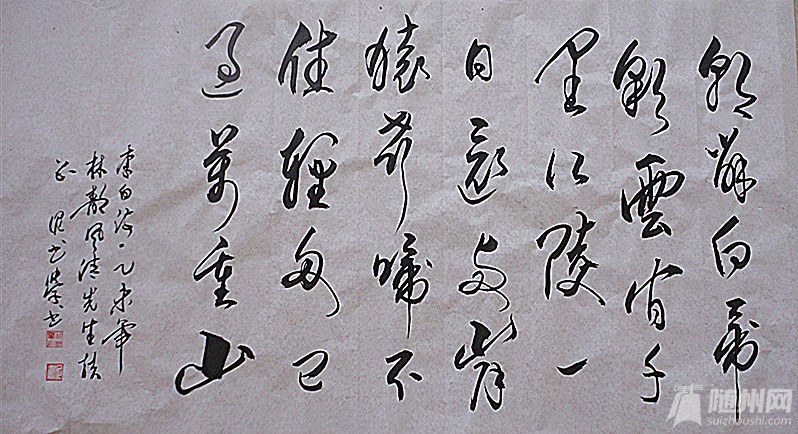 朝辭白帝
彩雲間千
里江陵一
日還兩岸
猿聲啼不
住輕舟已
過萬重山
李白詩乙未年
林静風清先生
随州网
suizhoushi.com